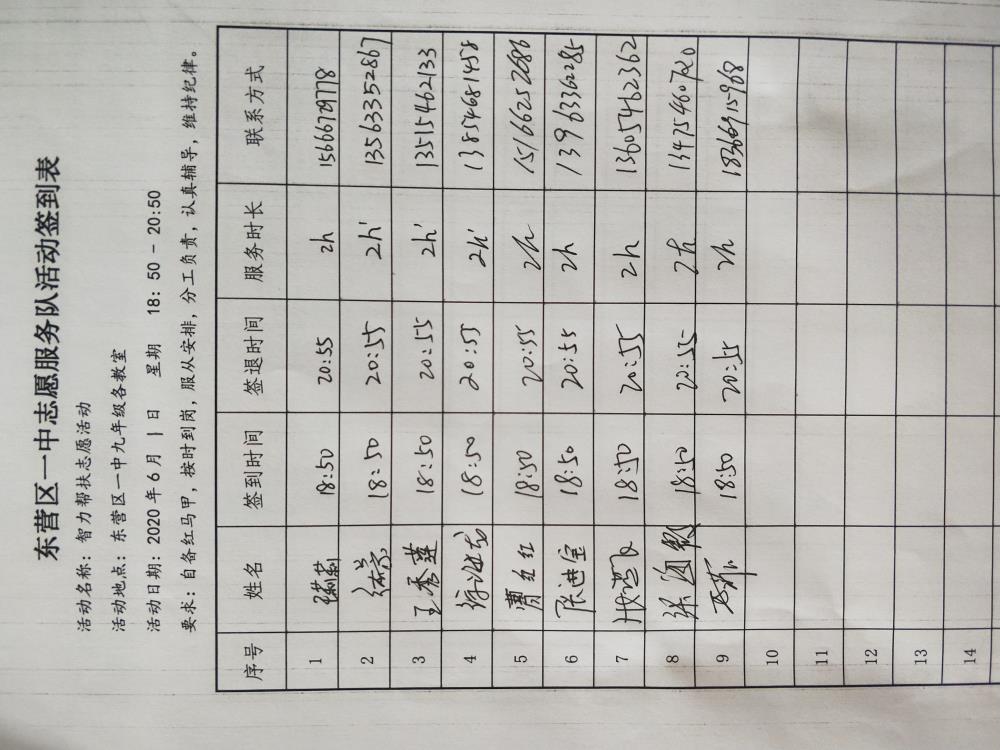 东营区一中志愿服务队活动签到表
活动名称：智力帮扶志愿活动
活动地点：东营区一中九年级各教室
活动日期：2020年6月1日 星期 18:50-20:50
要求：自备红马甲，按时到岗，服从安排，分工负责，认真辅导，维持纪律。
序号 姓名 签到时间 签退时间 服务时长 联系方式
1 18:50 20:55 2h 15666729778
2 18:50 20:55 2h' 13563352867
3 王秀莲 18:50 20:55 2h' 13515462133
4 18:50 20:55 2h' 13854681458
5 曹红红 18:50 20:55 2h 15166252686
6 张进宝 18:50 20:55 2h 13963362285
7 18:50 20:55 2h 13605462362
8 18:50 20:55 2h
9 18:50 20:55 2h
10
11
12
13
14